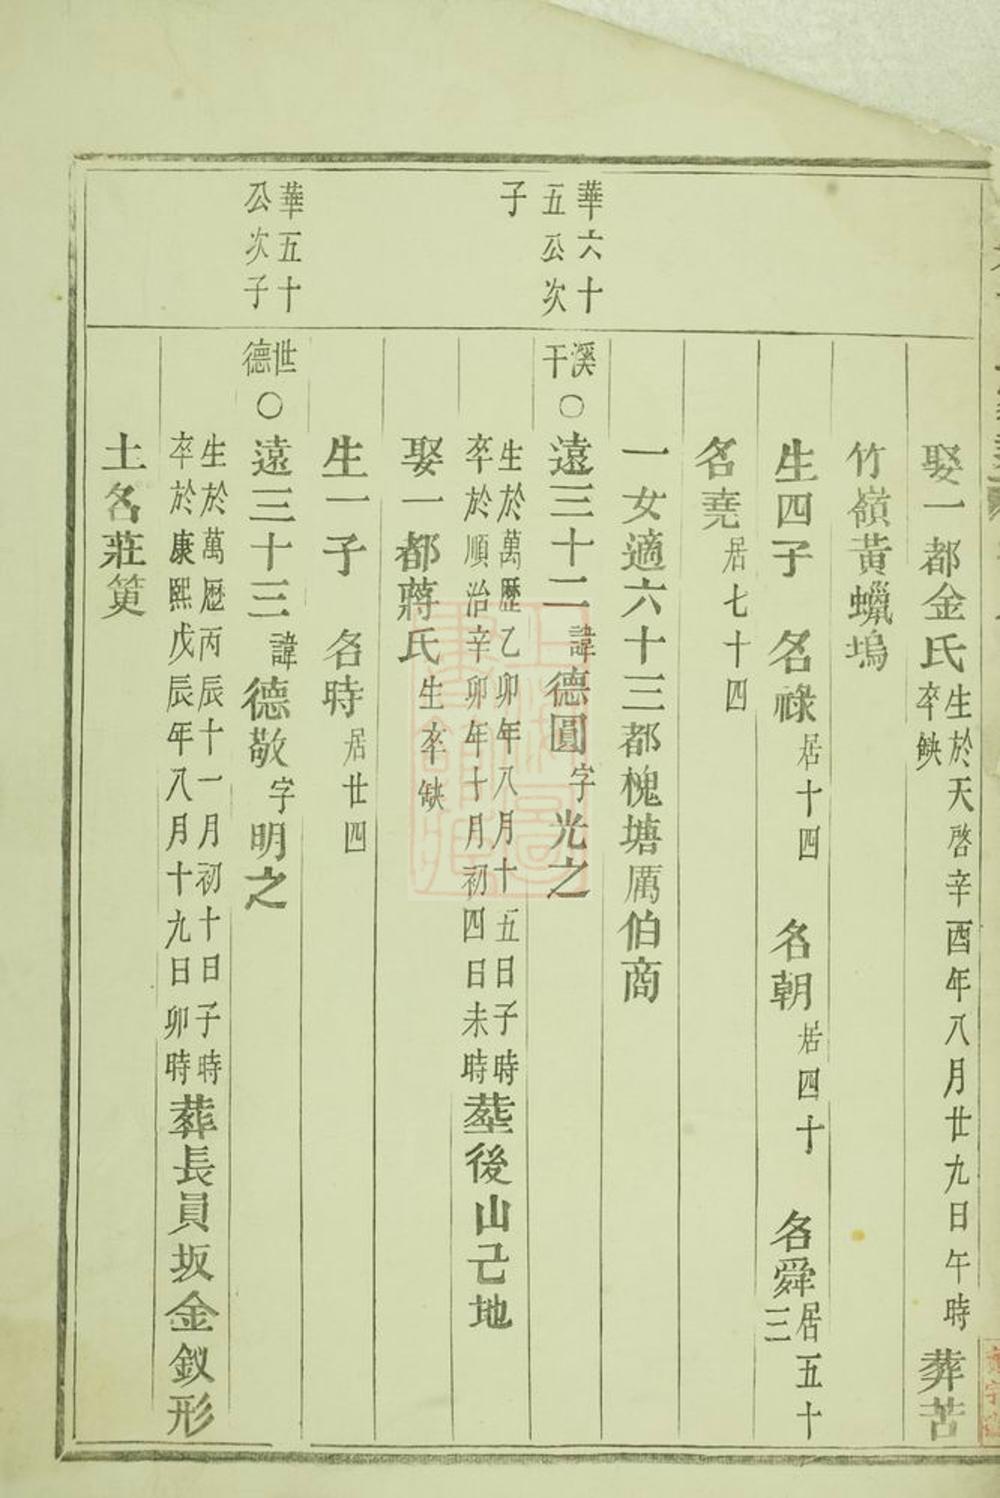 娶一都金氏生於天啓辛酉年八月廿九日午時卒缺葬苦
竹嶺黃蠟塢
生四子 名祿居十四 名朝居四十 名舜居五十三
名堯居七十四
一女適六十三都槐塘厲伯商
華六十五公次子
溪干○遠三十二諱德圓字光之
生於萬歷乙卯年八月十五日子時
卒於順治辛卯年十月初四日未時塟後山己地
娶一都蔣氏生卒缺
生一子 名時居廿四
華五十公次子
世德○遠三十三諱德敬字明之
生於萬歷丙辰十一月初十日子時
卒於康熙戊辰年八月十九日卯時葬長員坂金釵形
土名莊筻